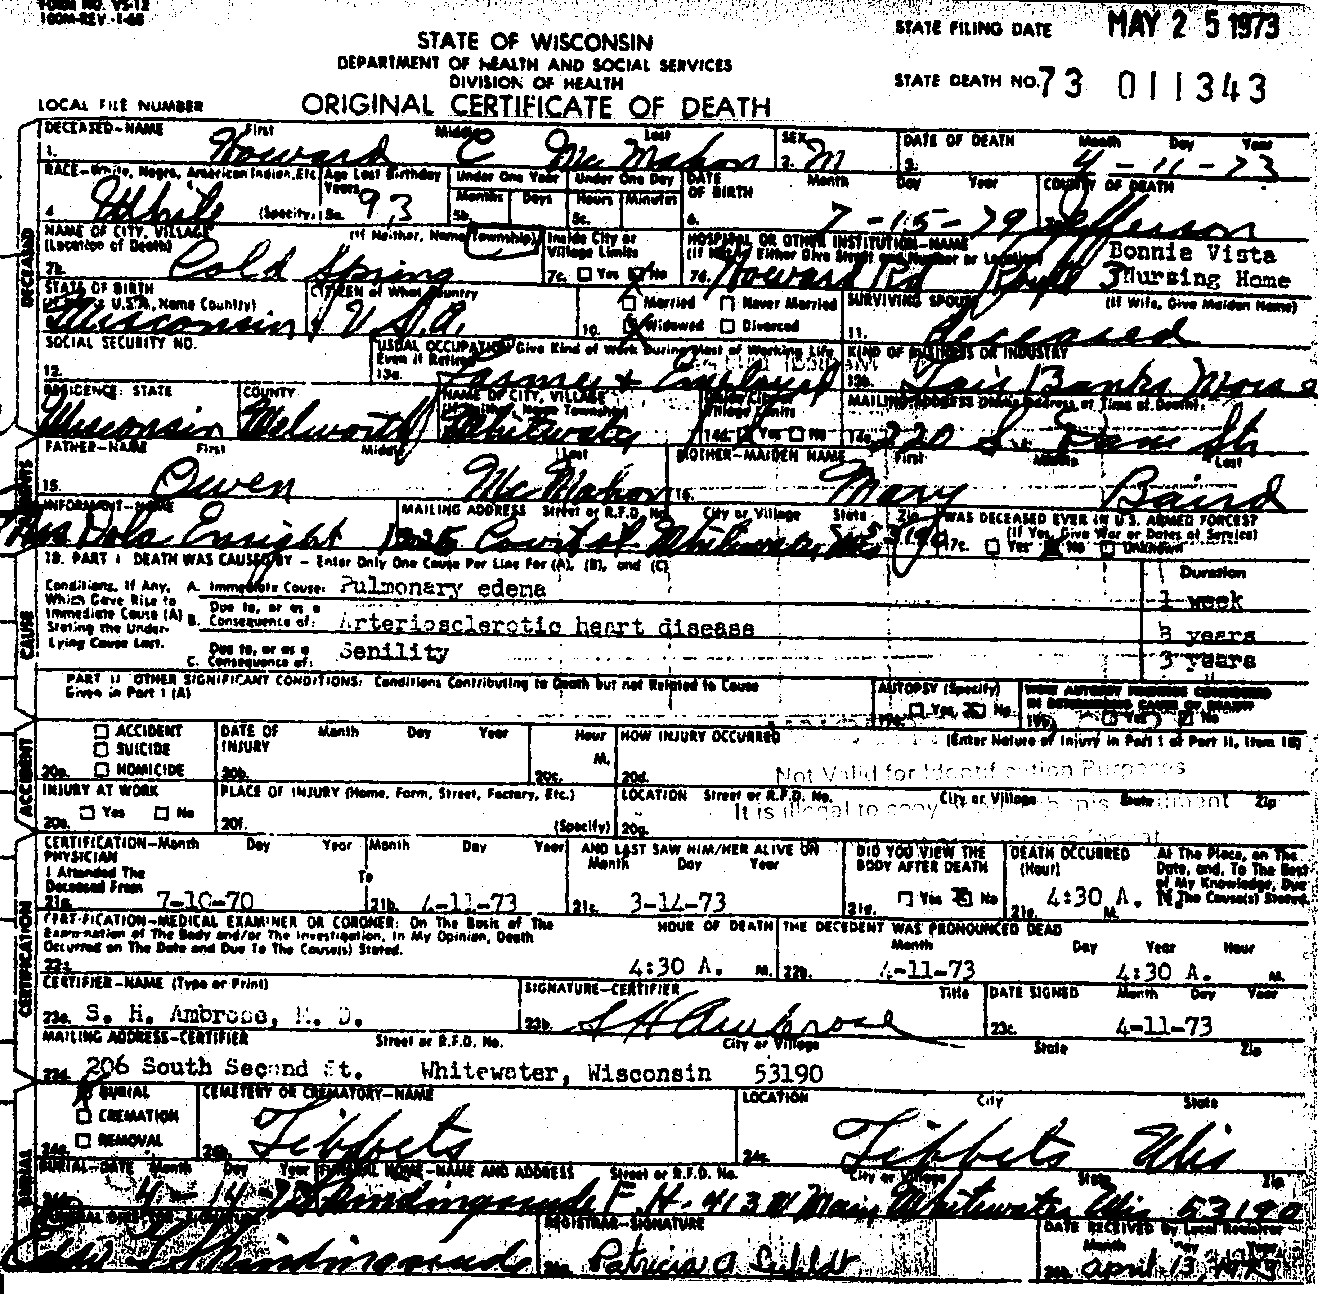 FORM NO. VS-12
100M-REV.-1-68
STATE FILING DATE MAY 25 1973
STATE OF WISCONSIN
DEPARTMENT OF HEALTH AND SOCIAL SERVICES
DIVISION OF HEALTH
STATE DEATH NO. 73 011343
LOCAL FILE NUMBER
ORIGINAL CERTIFICATE OF DEATH
DECEASED-NAME First Middle Last SEX DATE OF DEATH Month Day Year
1. Howard C McMahon 2. M 3. 4-11-73
RACE-White, Negro, American Indian, Etc. Age Last Birthday Under One Year Under One Day DATE OF BIRTH Month Day Year COUNTY OF DEATH
Years Months Days Hours Minutes
4. White (Specify) 5a. 93 5b. 5c. 6. 7-15-79 Jefferson
NAME OF CITY, VILLAGE (If Neither, Name Township) Inside City or HOSPITAL OR OTHER INSTITUTION-NAME Bonnie Vista
(Location of Death) Village Limits (If Neither Give Street and Number or Location) Nursing Home
7b. Cold Spring 7c. Yes No 7d. Howard Rd 3
STATE OF BIRTH CITIZEN of What Country Married Never Married SURVIVING SPOUSE (If Wife, Give Maiden Name)
U.S.A., Name Country)
Wisconsin U.S.A. 10. Widowed Divorced 11. Deceased
SOCIAL SECURITY NO. USUAL OCCUPATION Give Kind of Work During Most of Working Life KIND OF BUSINESS OR INDUSTRY
Even if Retired
12. 13a. Farmer + Employed 13b. Banks
RESIDENCE: STATE COUNTY NAME OF CITY, VILLAGE Inside City or MAILING ADDRESS
Village Limits
Wisconsin Walworth Whitewater 14d. Yes No 14e. 220 S.
FATHER-NAME First Middle Last MOTHER-MAIDEN NAME First Middle Last
15. Owen McMahon 16. Mary Baird
INFORMANT-NAME MAILING ADDRESS Street or R.F.D. No. City or Village State Zip WAS DECEASED EVER IN U.S. ARMED FORCES?
(If Yes, Give War or Dates of Service)
Enright Court st Whitewater 17c. Yes No Unknown
18. PART I DEATH WAS CAUSED BY - Enter Only One Cause Per Line For (A), (B), and (C) Duration
Conditions, If Any, A. Immediate Cause: Pulmonary edema 1 week
Which Gave Rise to Due to, or as a
Immediate Cause (A) B. Consequence of: Arteriosclerotic heart disease 3 years
Stating the Under-
Lying Cause Last. Due to, or as a Senility 3 years
C. Consequence of:
PART II OTHER SIGNIFICANT CONDITIONS: Conditions Contributing to Death but not Related to Cause AUTOPSY (Specify) WERE AUTOPSY FINDINGS CONSIDERED
Given in Part I (A) 19a. Yes No IN DETERMINING CAUSE OF DEATH
19b. Yes No
ACCIDENT DATE OF INJURY Month Day Year Hour HOW INJURY OCCURRED (Enter Nature of Injury in Part I or Part II, Item 18)
SUICIDE M.
20a. HOMICIDE 20b. 20c. 20d. Not Valid for Identification Purposes
INJURY AT WORK PLACE OF INJURY (Home, Farm, Street, Factory, Etc.) LOCATION Street or R.F.D. No. City or Village State Zip
Yes No It is illegal to copy
20e. 20f. (Specify) 20g.
CERTIFICATION-Month Day Year Month Day Year AND LAST SAW HIM/HER ALIVE ON DID YOU VIEW THE DEATH OCCURRED At The Place, on The
PHYSICIAN Month Day Year BODY AFTER DEATH (Hour) Date, and, To The Best
I Attended The To of My Knowledge, Due
Deceased From To The Cause(s) Stated.
21a. 7-10-70 21b. 4-11-73 21c. 3-14-73 21d. Yes No 21e. 4:30 A. M.
CERTIFICATION-MEDICAL EXAMINER OR CORONER: On The Basis of The HOUR OF DEATH THE DECEDENT WAS PRONOUNCED DEAD
Examination of The Body and/or The Investigation, In My Opinion, Death Month Day Year Hour
Occurred on The Date and Due To The Cause(s) Stated.
22a. 4:30 A. M. 22b. 4-11-73 4:30 A. M.
CERTIFIER-NAME (Type or Print) SIGNATURE-CERTIFIER Title DATE SIGNED Month Day Year
23a. S. H. Ambrose, M. D. 23b. S H Ambrose 23c. 4-11-73
MAILING ADDRESS-CERTIFIER Street or R.F.D. No. City or Village State Zip
23d. 206 South Second St. Whitewater, Wisconsin 53190
BURIAL CEMETERY OR CREMATORY-NAME LOCATION City State
CREMATION
24a. REMOVAL 24b. Tibbets 24c. Tibbets Wis
BURIAL-DATE Month Day Year FUNERAL HOME-NAME AND ADDRESS Street or R.F.D. No. City or Village State Zip
4-14-73 Skindingsrude F.H. 413 W Main Whitewater Wis 53190
REGISTRAR-SIGNATURE DATE RECEIVED By Local Registrar
Month Day Year
Skindingsrude Patricia A April 13, 1973
DECEASED
PARENTS
CAUSE
ACCIDENT
CERTIFICATION
BURIAL